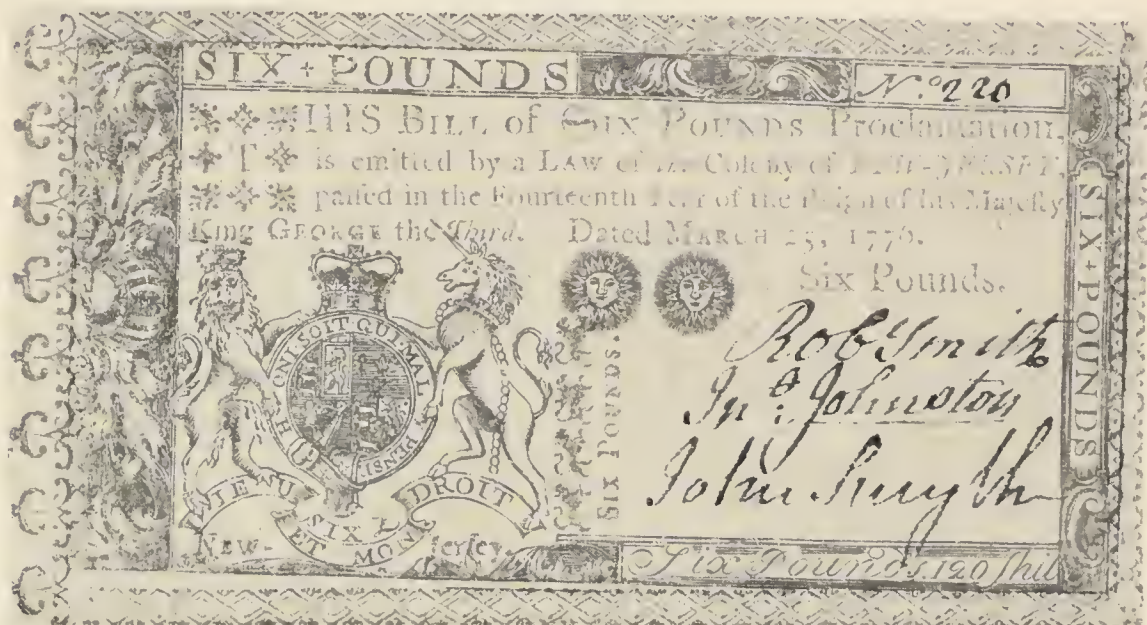 SIX + POUNDS
No. 220
THIS BILL of SIX POUNDS Proclamation,
is emitted by a LAW of the Colony of NEW-JERSEY,
passed in the Fourteenth Year of the Reign of his Majesty
King GEORGE the Third. Dated MARCH 25, 1776.
Six Pounds.
Rob Smith
Jno. Johnston
John Smyth
HONI SOIT QUI MAL Y PENSE
DIEU
ET MON
DROIT
SIX £
NEW-Jersey.
SIX POUNDS.
SIX + POUNDS
Six Pounds, 120 Shil